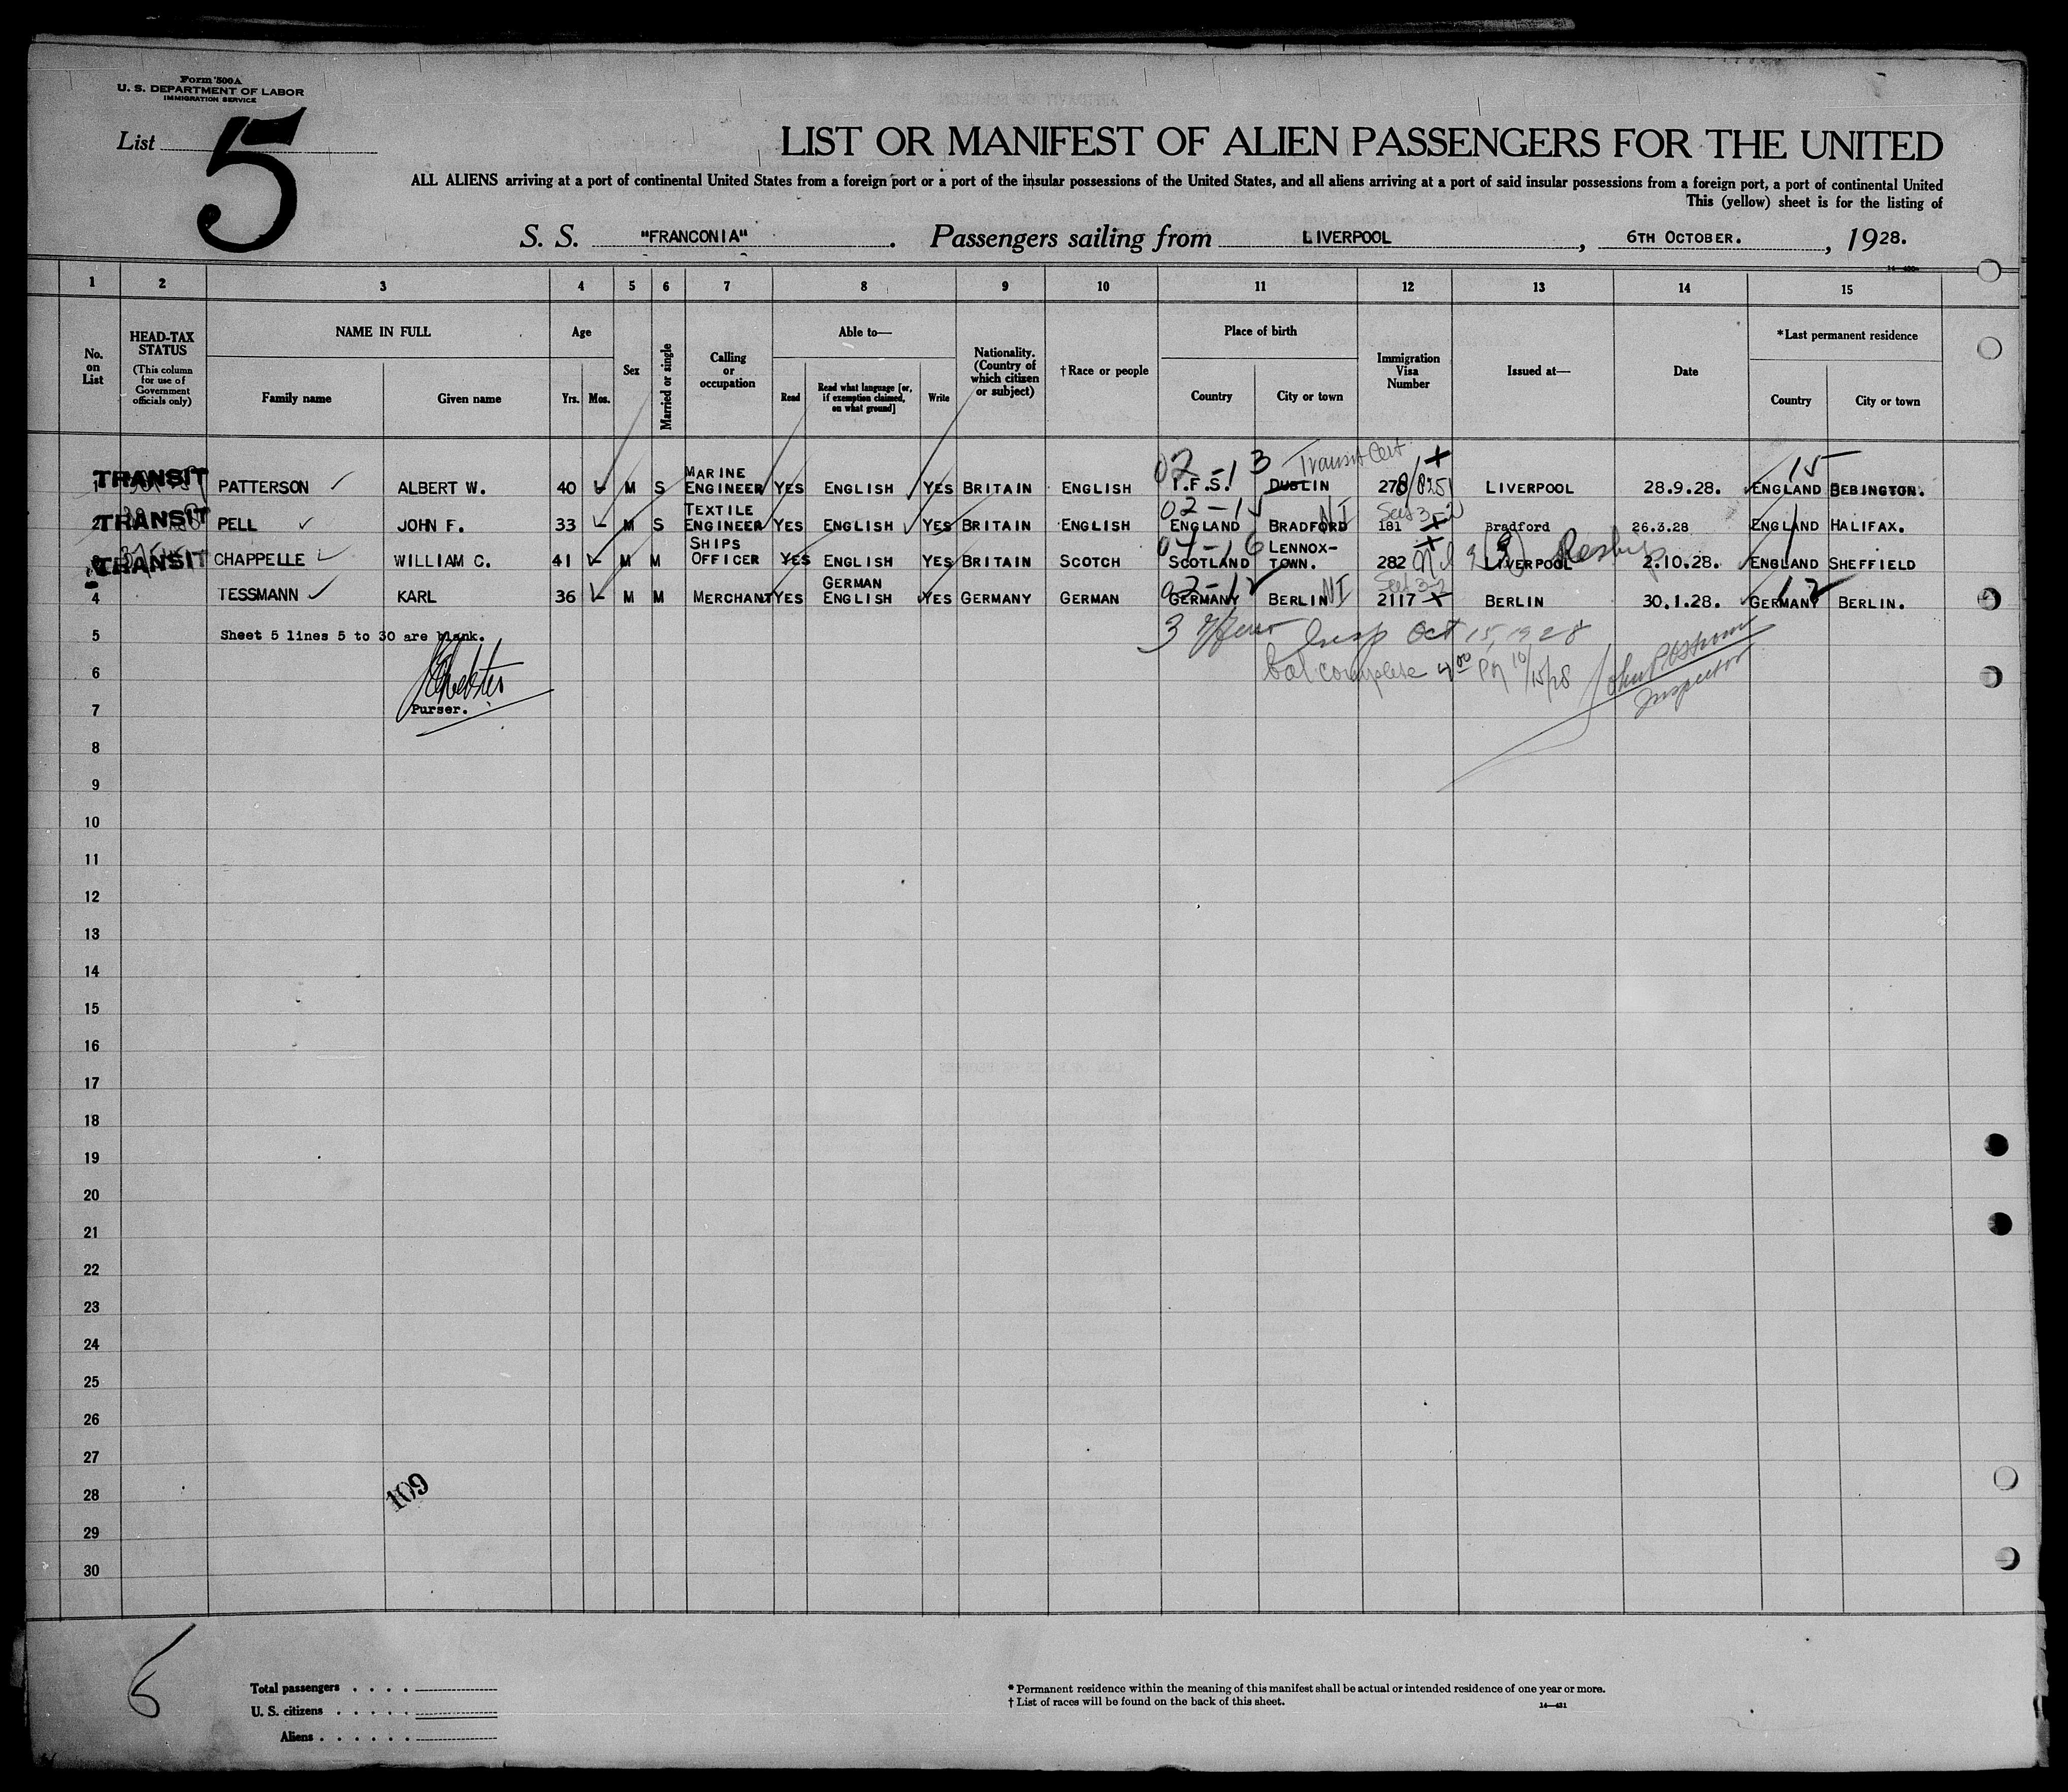 Form 500A
U. S. DEPARTMENT OF LABOR
IMMIGRATION SERVICE
List 5
LIST OR MANIFEST OF ALIEN PASSENGERS FOR THE UNITED
ALL ALIENS arriving at a port of continental United States from a foreign port or a port of the insular possessions of the United States, and all aliens arriving at a port of said insular possessions from a foreign port, a port of continental United
This (yellow) sheet is for the listing of
S. S. "FRANCONIA". Passengers sailing from LIVERPOOL, 6TH OCTOBER., 1928.
1 2 3 4 5 6 7 8 9 10 11 12 13 14 15
No. on List
HEAD-TAX STATUS (This column for use of Government officials only)
NAME IN FULL
Family name Given name
Age
Yrs. Mos.
Sex
Married or single
Calling or occupation
Able to—
Read Read what language [or, if exemption claimed, on what ground] Write
Nationality. (Country of which citizen or subject)
†Race or people
Place of birth
Country City or town
Immigration Visa Number
Issued at—
Date
*Last permanent residence
Country City or town
02-13 Transit Cert. + 15
1 TRANSIT PATTERSON ALBERT W. 40 M S MARINE ENGINEER YES ENGLISH YES BRITAIN ENGLISH I.F.S. DUBLIN 278 LIVERPOOL 28.9.28. ENGLAND BEBINGTON.
2 TRANSIT PELL JOHN F. 33 M S TEXTILE ENGINEER YES ENGLISH YES BRITAIN ENGLISH ENGLAND BRADFORD 181 Bradford 26.3.28 ENGLAND HALIFAX.
3 TRANSIT CHAPPELLE WILLIAM C. 41 M M SHIPS OFFICER YES ENGLISH YES BRITAIN SCOTCH SCOTLAND LENNOX-TOWN. 282 LIVERPOOL 2.10.28. ENGLAND SHEFFIELD
4 TESSMANN KARL 36 M M MERCHANT YES GERMAN ENGLISH YES GERMANY GERMAN GERMANY BERLIN NI 2117 BERLIN 30.1.28. GERMANY BERLIN.
5 Sheet 5 lines 5 to 30 are blank.
Insp Oct 15, 1928
6
complete 4 00 PM 10/15/28
Inspector
7 Purser.
8
9
10
11
12
13
14
15
16
17
18
19
20
21
22
23
24
25
26
27
28
109
29
30
Total passengers . . . .
U. S. citizens . . . . .
Aliens . . . . . .
* Permanent residence within the meaning of this manifest shall be actual or intended residence of one year or more.
† List of races will be found on the back of this sheet.
14—421